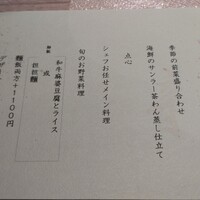 季節の前菜盛り合わせ
海鮮のサンラー茶わん蒸し仕立て
点心
シェフお任せメイン料理
旬のお野菜料理
和牛麻婆豆腐とライス
或
担担麺
麺飯両方＋1100円
デザート